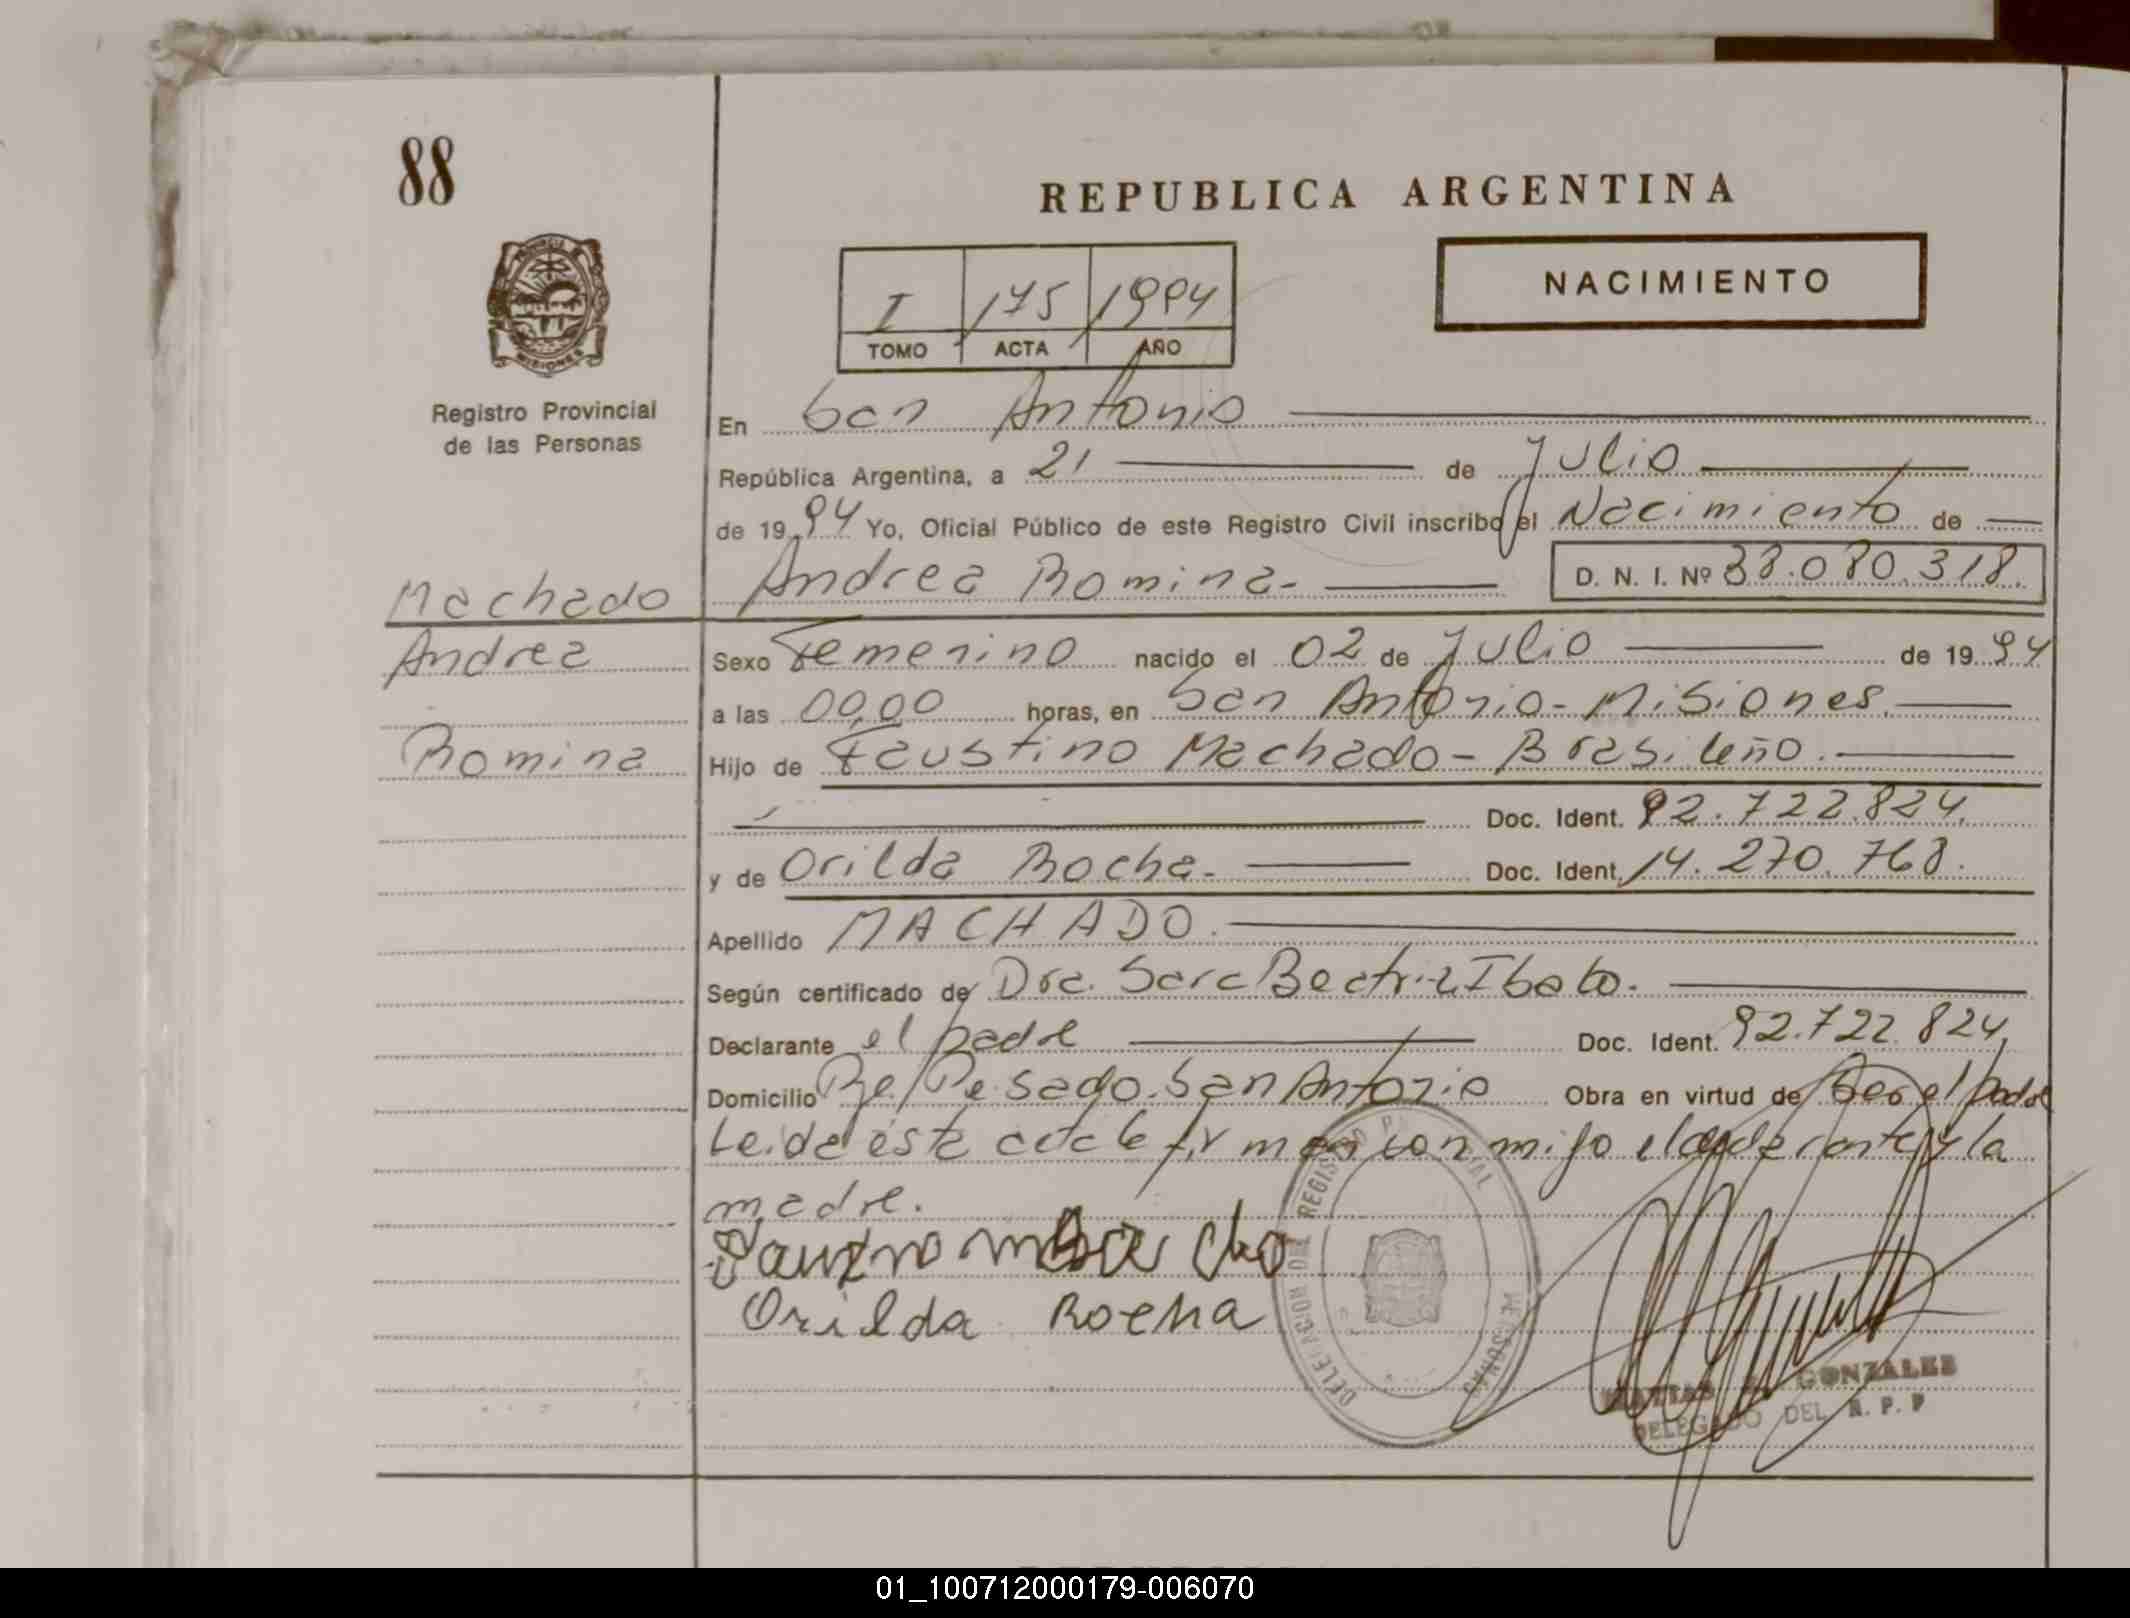 88
REPUBLICA ARGENTINA
NACIMIENTO
I 175 1994
TOMO ACTA AÑO
PROVINCIA DE MISIONES
Registro Provincial
de las Personas
En San Antonio
República Argentina, a 21 de Julio
de 1994 Yo, Oficial Público de este Registro Civil inscribo el Nacimiento de
Andrea Romina- D. N. I. Nº 38.080.318.
Machado
Andrea
Romina
Sexo Femenino nacido el 02 de Julio de 1994
a las 00,00 horas, en San Antonio-Misiones.
Hijo de Faustino Machado-Brasileño.
Doc. Ident. 92.722.824.
y de Orilda Rocha- Doc. Ident. 14.270.768.
Apellido MACHADO.
Según certificado de Dra. Sara Beatriz
Declarante el padre Doc. Ident. 92.722.824,
Domicilio San Antonio Obra en virtud de Ser el Padre
Leida ésta acta la firman conmigo el declarante y la
madre.
Orilda Rocha
DELEGACION DEL REGISTRO PROVINCIAL PERSONAS
MATIAS GONZALEZ
DELEGADO DEL R. P. P
01_100712000179-006070